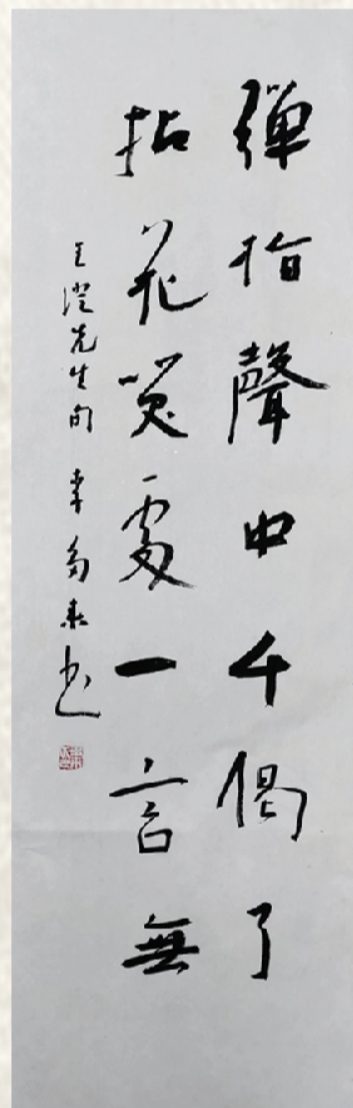 彈指聲中千偈了
拈花笑處一言無
王澄先生句 书